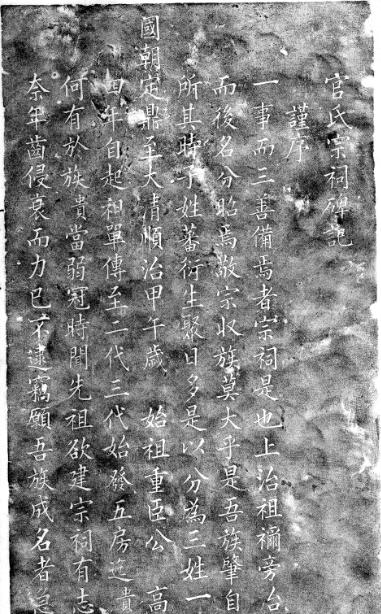 官氏宗祠碑記
謹序
一事而三善備焉者宗祠是也上治祖禰旁治
而後名分昭焉敬宗收族莫大乎是吾族肇自
所其時子姓蕃衍生聚日多是以分為三姓一
國朝定鼎至大清順治甲午歲 始祖重臣公 高
四年自起祖單傳至二代三代始發五房迄貴
何有於族貴當弱冠時聞先祖欲建宗祠有志
奈年齒侵衰而力已不逮竊願吾族成名者急